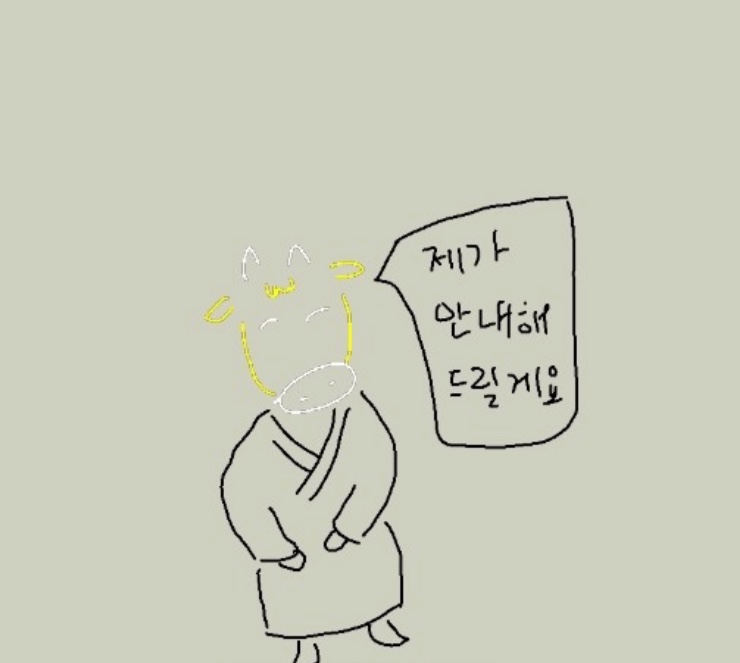 제가
안내해
드릴게요